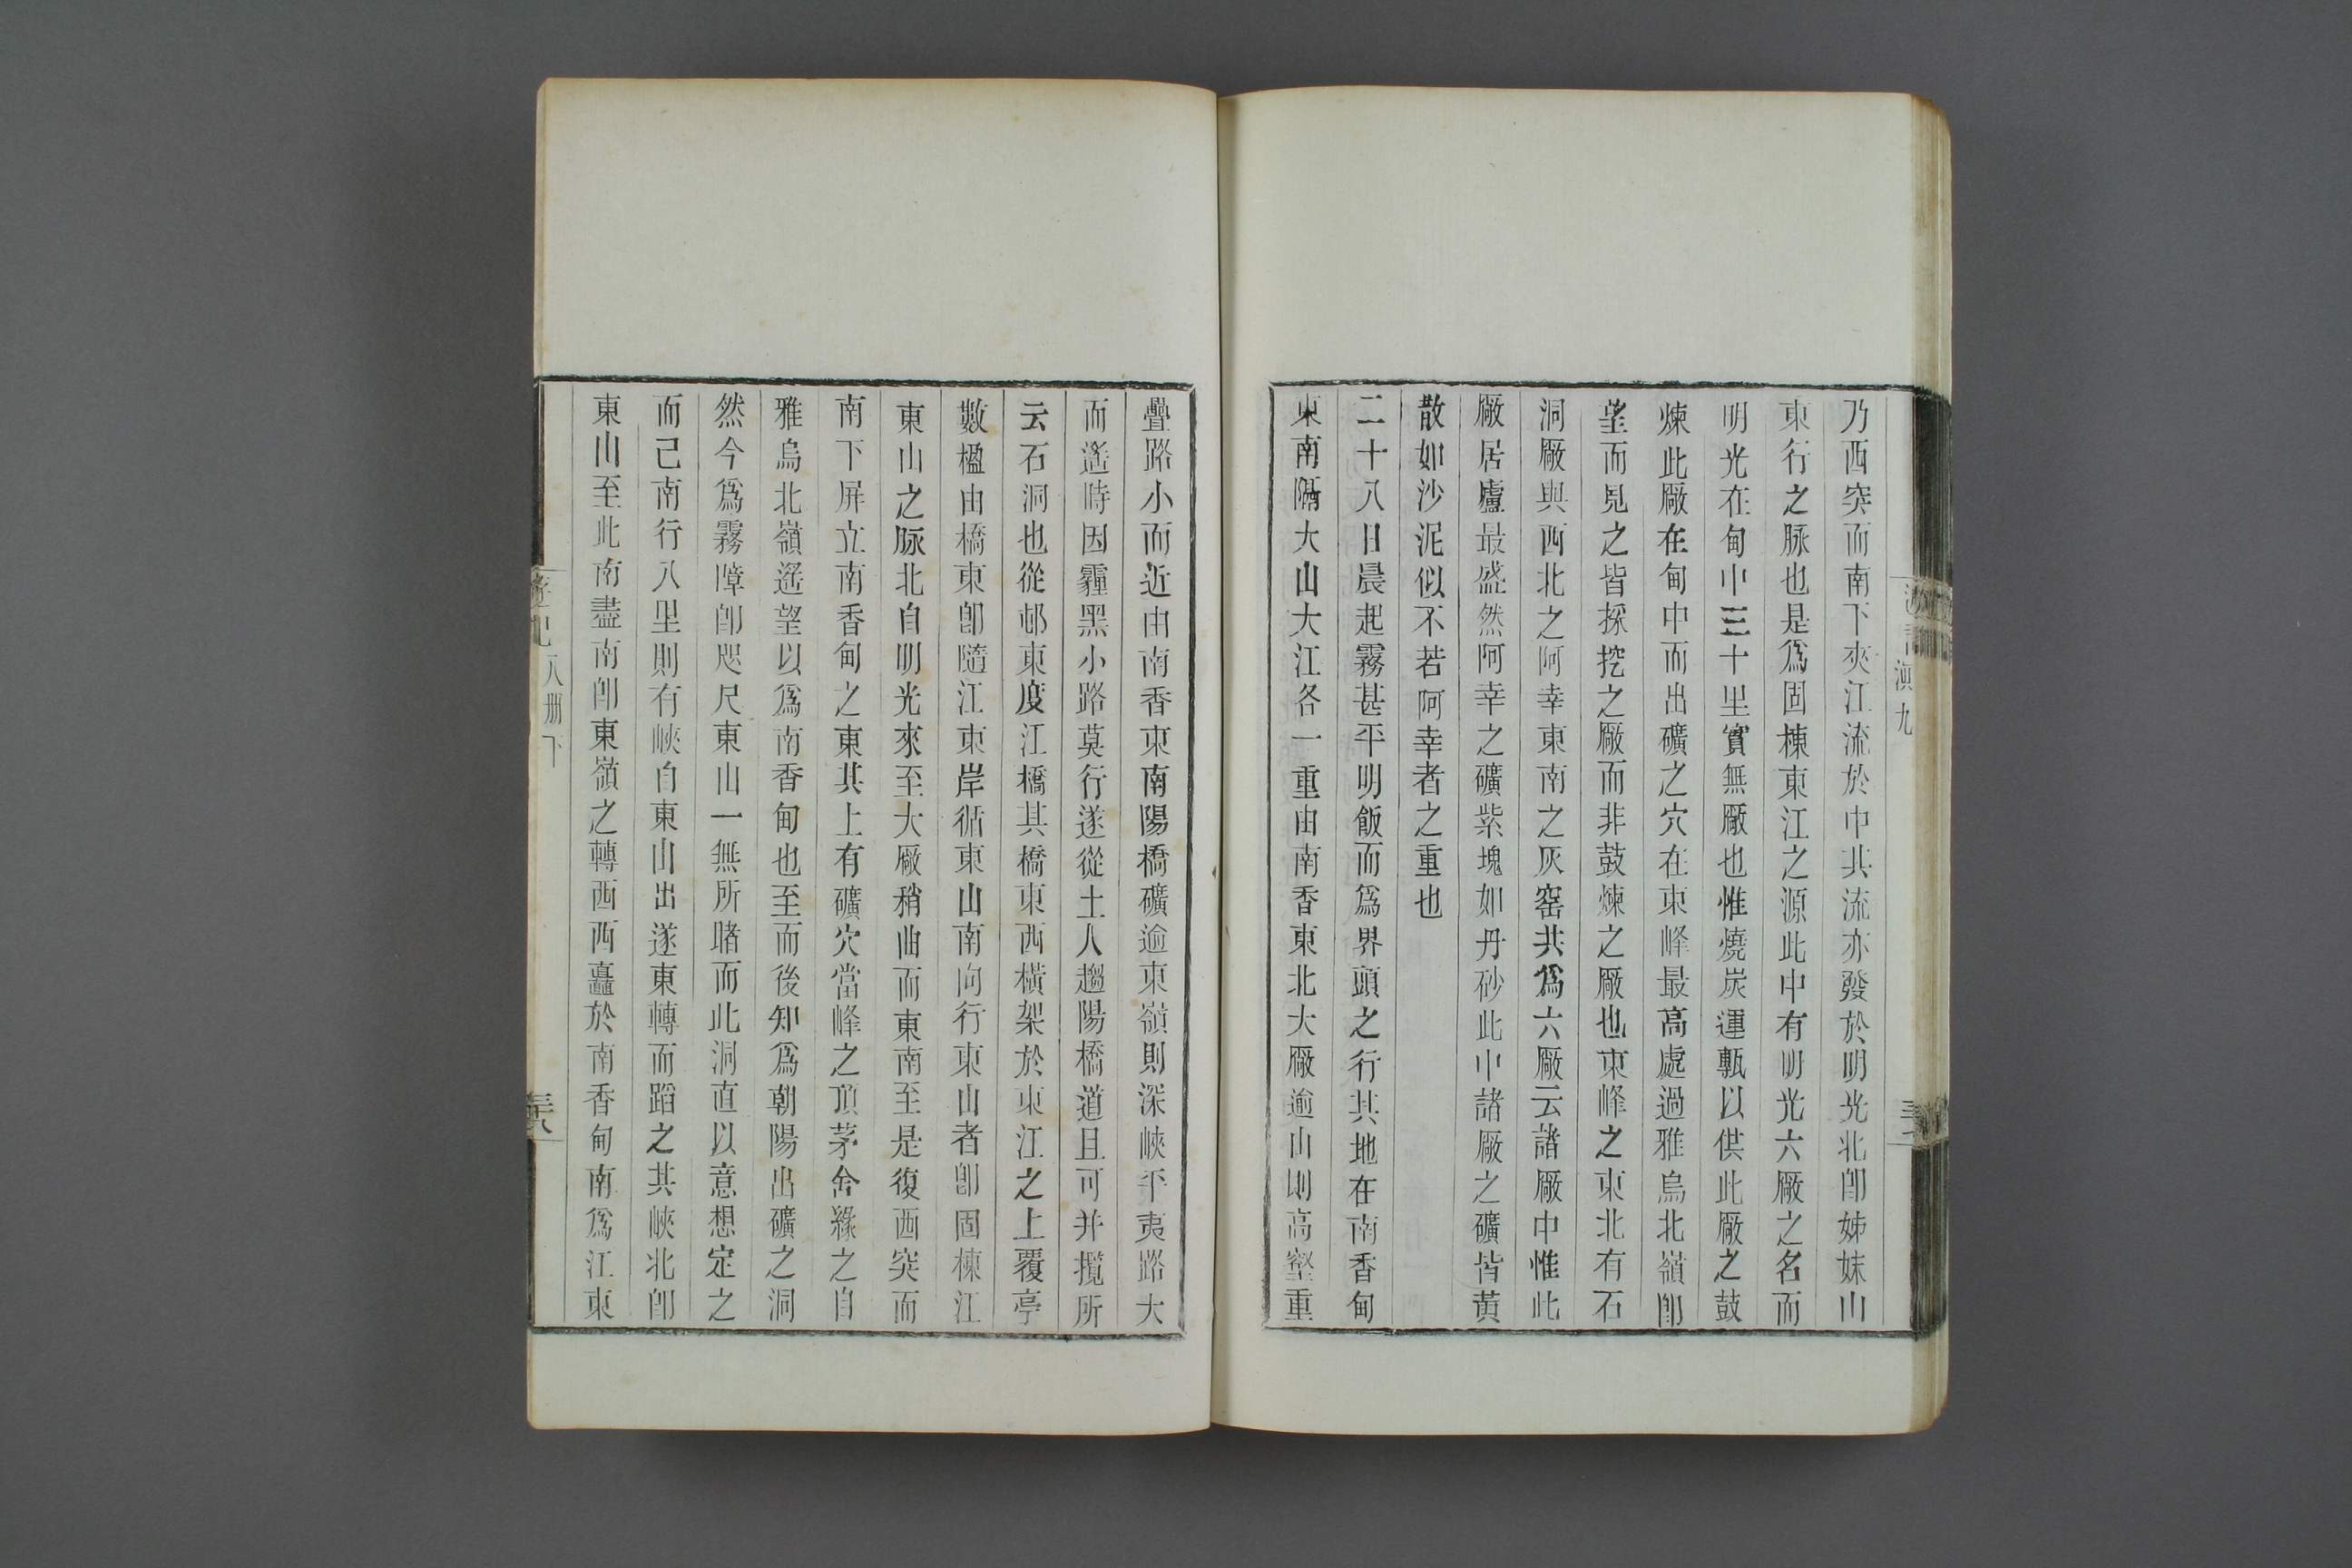 乃西突而南下夾江流於中其流亦發於明光北卽姊妹山
東行之脉也是爲固棟東江之源此中有明光六廠之名而
明光在甸中三十里實無廠也惟燒炭運甎以供此廠之鼓
煉此廠在甸中而出礦之穴在東峰最高處過雅烏北嶺卽
望而見之皆採挖之廠而非鼓煉之廠也東峰之東北有石
洞廠與西北之阿幸東南之灰窑共爲六廠云諸廠中惟此
廠居廬最盛然阿幸之礦紫塊如丹砂此中諸廠之礦皆黃
散如沙泥似不若阿幸者之重也
二十八日晨起霧甚平明飯而爲界頭之行其地在南香甸
東南隔大山大江各一重由南香東北大廠逾山則高壑重
疊路小而近由南香東南陽橋礦逾東嶺則深峽平夷路大
而遙時因霾黑小路莫行遂從土人趨陽橋道且可并攬所
云石洞也從邨東度江橋其橋東西橫架於東江之上覆亭
數楹由橋東卽隨江東岸循東山南向行東山者卽固棟江
東山之脉北自明光來至大廠稍曲而東南至是復西突而
南下屏立南香甸之東其上有礦穴當峰之頂茅舍緣之自
雅烏北嶺遙望以爲南香甸也至而後知爲朝陽出礦之洞
然今爲霧障卽咫尺東山一無所睹而此洞直以意想定之
而已南行八里則有峽自東山出遂東轉而蹈之其峽北卽
東山至此南盡南卽東嶺之轉西西矗於南香甸南爲江東
滇九
遊記
八册下
三十八